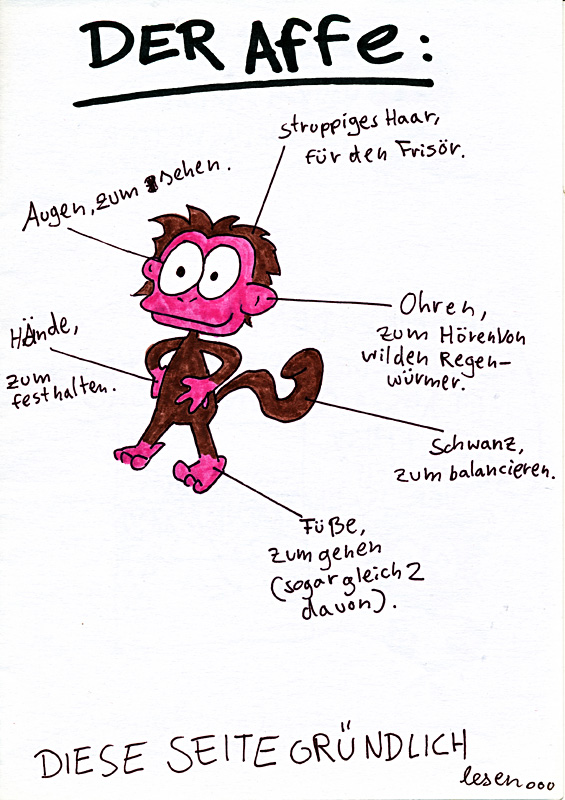 DER AFFE:
struppiges Haar,
für den Frisör.
Augen, zum sehen.
Ohren,
zum Hören von
wilden Regen-
würmer.
Hände,
zum
festhalten.
Schwanz,
zum balancieren.
Füße,
zum gehen
(sogar gleich 2
davon).
DIESE SEITE GRÜNDLICH
lesen...